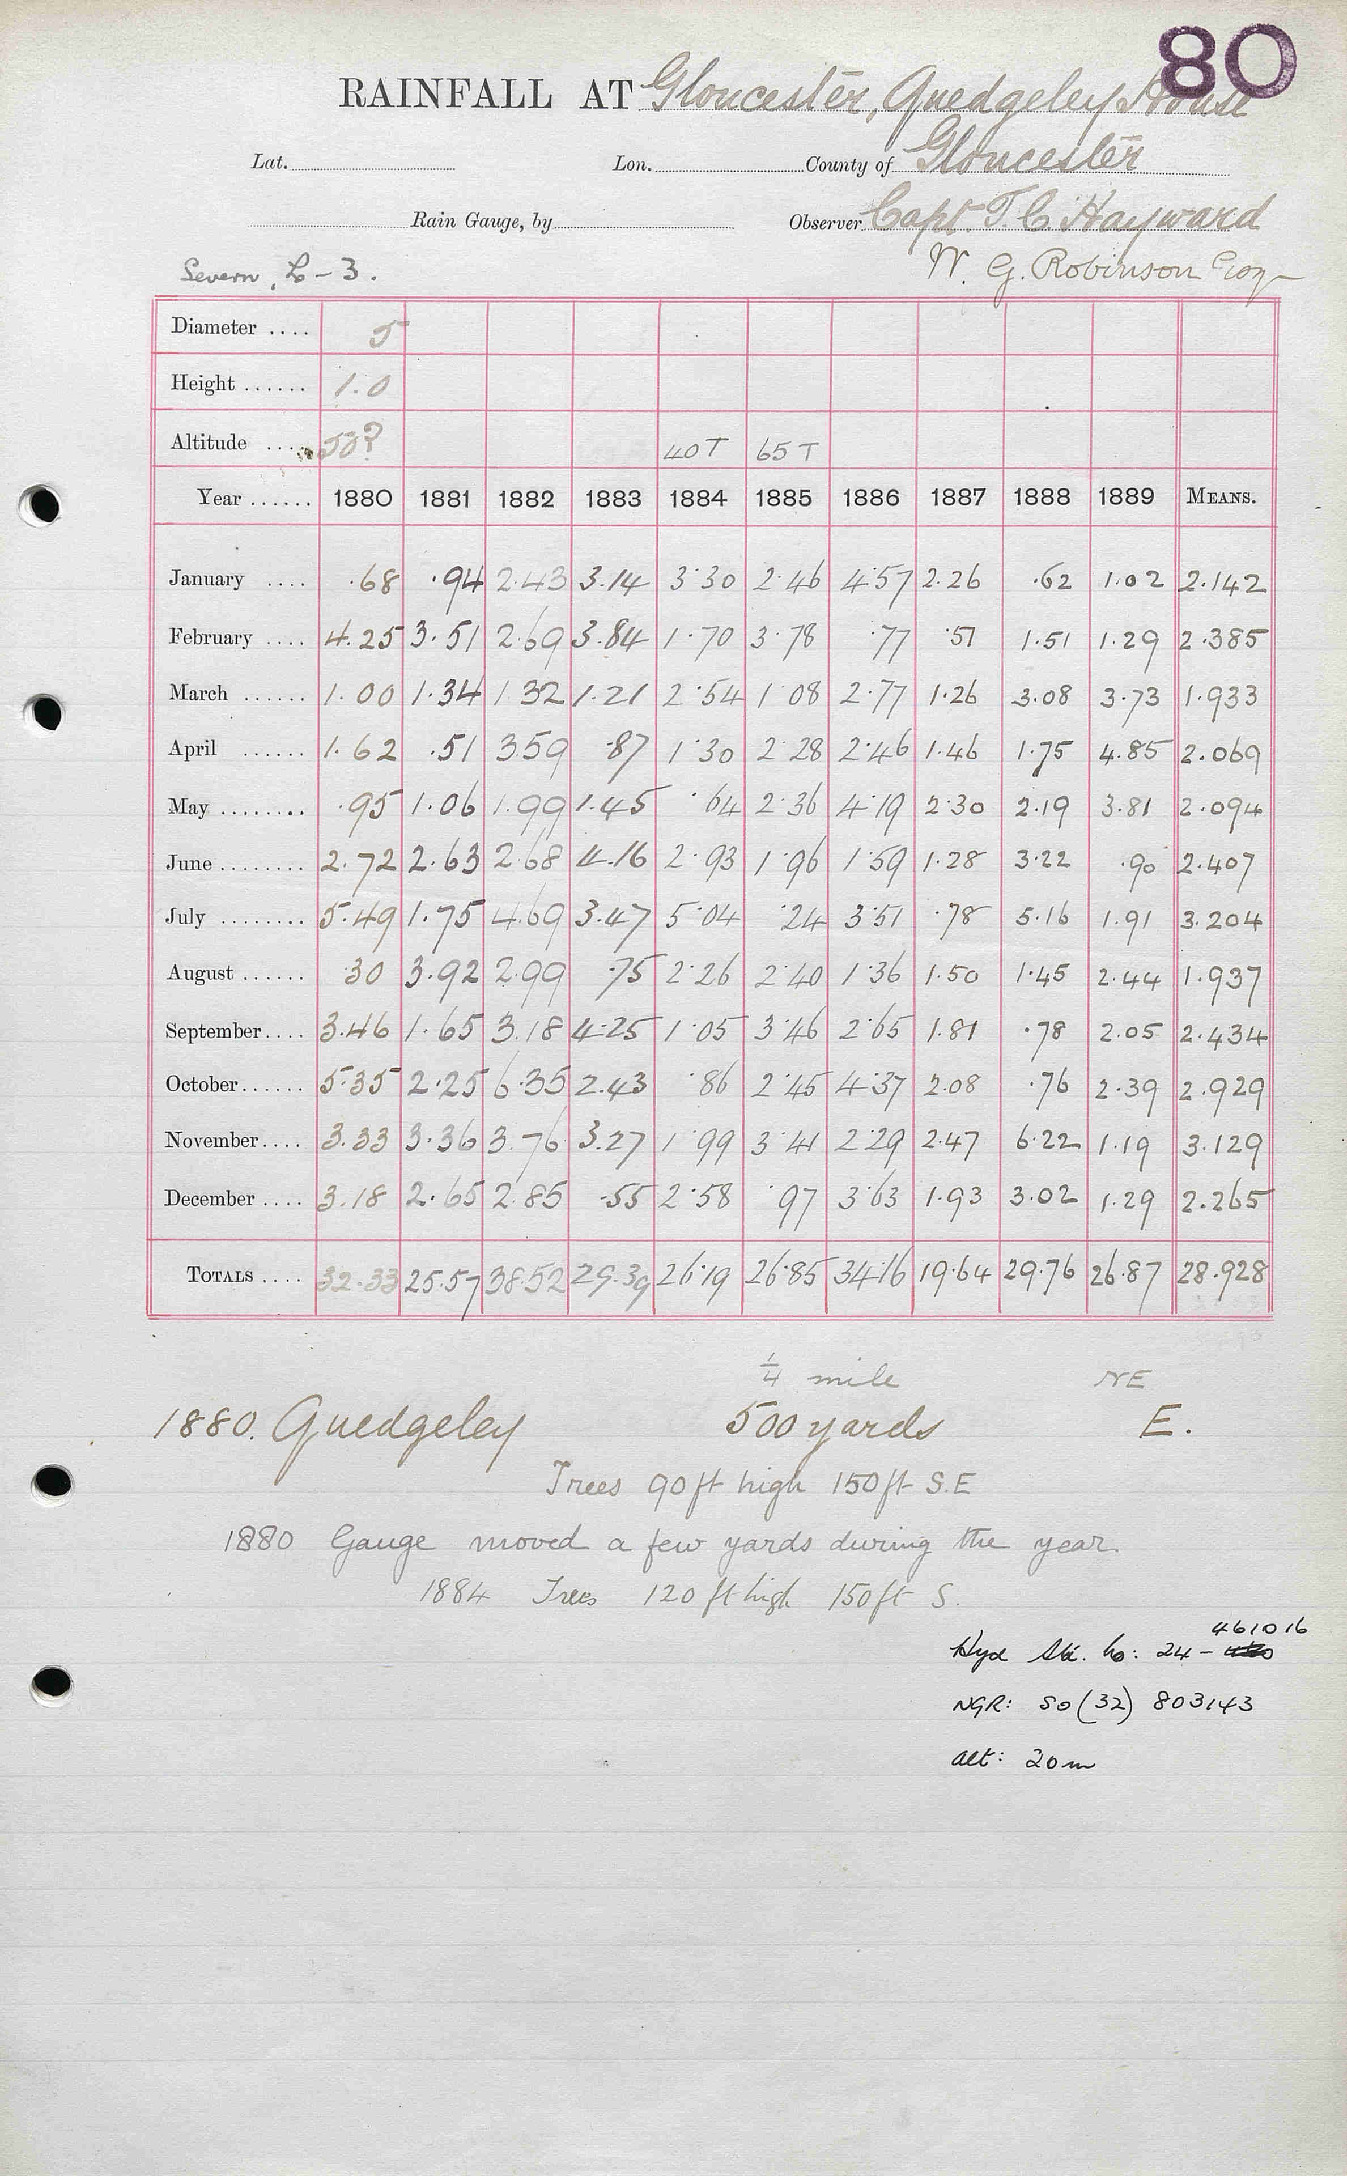 80
RAINFALL AT Gloucester, Quedgeley House
Lat. Lon. County of Gloucester
Rain Gauge, by Observer Capt. T. C. Hayward
Severn, L-3. W. G. Robinson Esq
Diameter .... 5
Height ...... 1.0
Altitude .... 50?     40T 65T
Year ...... 1880 1881 1882 1883 1884 1885 1886 1887 1888 1889 MEANS.
January .... .68 .94 2.43 3.14 3.30 2.46 4.57 2.26 .62 1.02 2.142
February .... 4.25 3.51 2.69 3.84 1.70 3.78 .77 .57 1.51 1.29 2.385
March ...... 1.00 1.34 1.32 1.21 2.54 1.08 2.77 1.26 3.08 3.73 1.933
April ...... 1.62 .51 3.59 .87 1.30 2.28 2.46 1.46 1.75 4.85 2.069
May ........ .95 1.06 1.99 1.45 .64 2.36 4.19 2.30 2.19 3.81 2.094
June ........ 2.72 2.63 2.68 4.16 2.93 1.96 1.59 1.28 3.22 .90 2.407
July ........ 5.49 1.75 4.69 3.47 5.04 .24 3.51 .78 5.16 1.91 3.204
August ...... .30 3.92 2.99 .75 2.26 2.40 1.36 1.50 1.45 2.44 1.937
September .... 3.46 1.65 3.18 4.25 1.05 3.46 2.65 1.81 .78 2.05 2.434
October ...... 5.35 2.25 6.35 2.43 .86 2.45 4.37 2.08 .76 2.39 2.929
November .... 3.33 3.36 3.76 3.27 1.99 3.41 2.29 2.47 6.22 1.19 3.129
December .... 3.18 2.65 2.85 .55 2.58 .97 3.63 1.93 3.02 1.29 2.265
TOTALS .... 32.33 25.57 38.52 29.39 26.19 26.85 34.16 19.64 29.76 26.87 28.928
1/4 mile NE
1880. Quedgeley 500 yards E.
Trees 90ft high 150ft S.E
1880 Gauge moved a few yards during the year.
1884 Trees 120 ft high 150ft S.
461016
Hyd Sta. No: 24-
NGR: SO (32) 803143
Alt: 20m